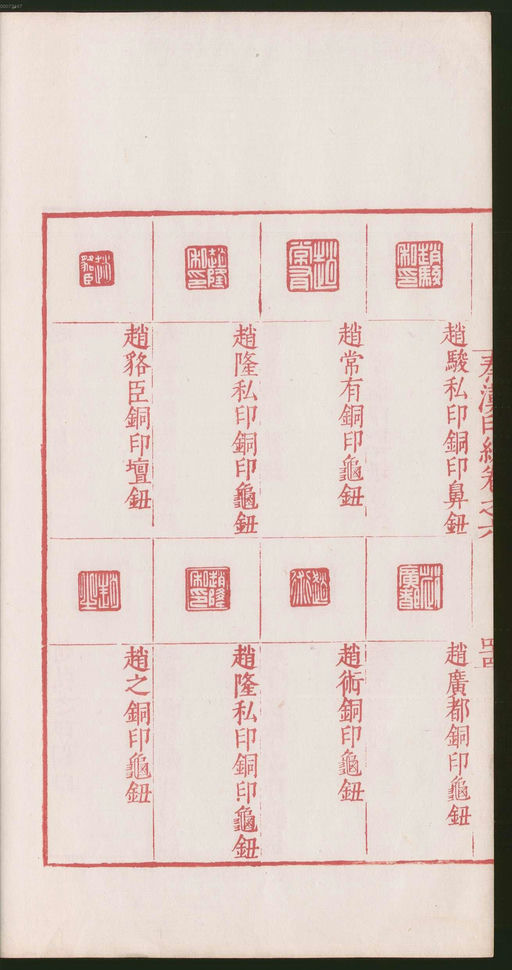 秦漢印統卷之六
趙駿私印銅印鼻鈕
趙常有銅印龜鈕
趙隆私印銅印龜鈕
趙貉臣銅印壇鈕
趙廣都銅印龜鈕
趙術銅印龜鈕
趙隆私印銅印龜鈕
趙之銅印龜鈕